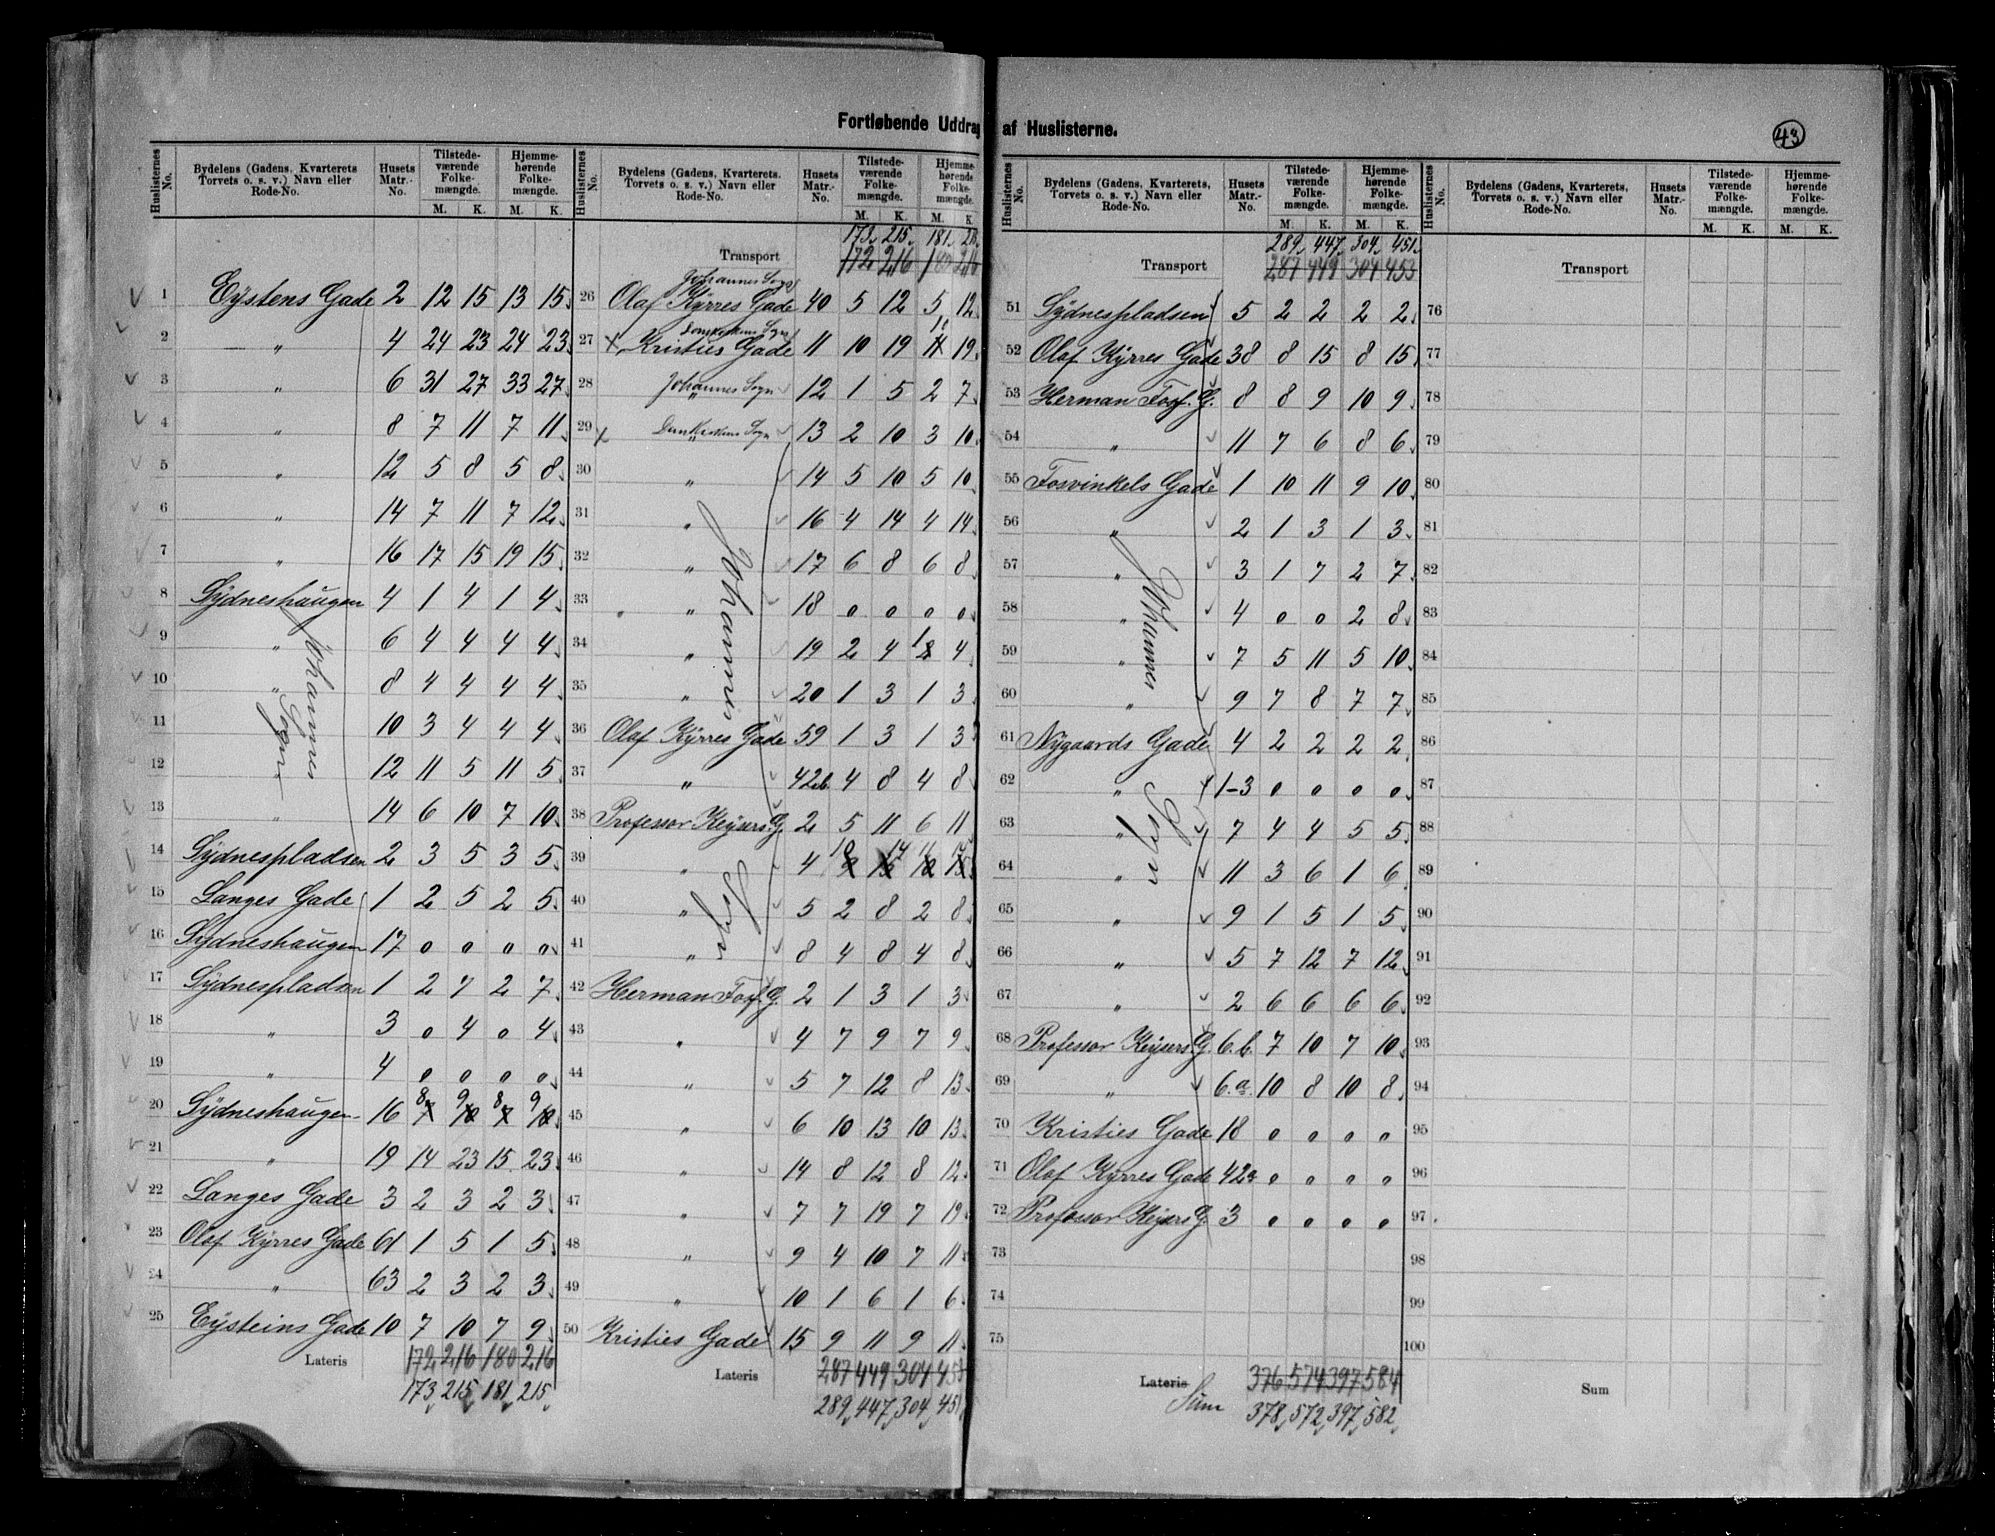 Fortløbende Uddrag af Huslisterne.
43
Huslisternes No. | Bydelens (Gadens, Kvarterets Torvets o. s. v.) Navn eller Rode-No. | Husets Matr.-No. | Tilstedeværende Folkemængde. M. K. | Hjemmehørende Folkemængde. M. K.
1 Eystens Gade 2 12 15 13 15
2 " 4 24 23 24 23
3 " 6 31 27 33 27
4 " 8 7 11 7 11
5 " 12 5 8 5 8
6 " 14 7 11 7 12
7 " 16 17 15 19 15
8 Sydneshaugen 4 1 4 1 4
9 " 6 4 4 4 4
10 " 8 4 4 4 4
11 10 3 4 4 4
12 12 11 5 11 5
13 " 14 6 10 7 10
14 Sydnespladsen 2 3 5 3 5
15 Langes Gade 1 2 5 2 5
16 Sydneshaugen 17 0 0 0 0
17 Sydnespladsen 1 2 7 2 7
18 " 3 0 4 0 4
19 " 4 0 0 0 0
20 Sydneshaugen 16 8 9 8 9
21 " 19 14 23 15 23
22 Langes Gade 3 2 3 2 3
23 Olaf Kyrres Gade 61 1 5 1 5
24 " 63 2 3 2 3
25 Eysteins Gade 10 7 10 7 9
Johannes Sogn
Lateris 172 216 180 216
173 215 181 215
Huslisternes No. | Bydelens (Gadens, Kvarterets. Torvets o. s. v.) Navn eller Rode-No. | Husets Matr.-No. | Tilstedeværende Folkemængde. M. K. | Hjemmehørende Folkemængde. M. K
173 215 181
Transport 172 216
Johannes Sogn
26 Olaf Kyrres Gade 40 5 12 5 12
Domkirkens Sogn
27 x Kristies Gade 11 10 19 10 19
28 Johannes Sogn 12 1 5 2 7
29 x Domkirkens Sogn 13 2 10 3 10
30 " 14 5 10 5 10
31 " 16 4 14 4 14
32 " 17 6 8 6 8
33 " 18 0 0 0 0
34 " 19 2 4 1 4
35 " 20 1 3 1 3
36 Olaf Kyrres Gade 59 1 3 1 3
37 " 42b 4 8 4 8
38 Professor Keysers G. 2 5 11 6 11
39 " 4 10 14 11 14
40 " 5 2 8 2 8
41 " 8 4 8 4 8
42 Herman Fosf. G. 2 1 3 1 3
43 " 4 7 9 7 9
44 " 5 7 12 8 13
45 " 6 10 13 10 13
46 " 14 8 12 8 12
47 " 7 7 19 7 19
48 " 9 4 10 7 11
49 " 10 1 6 1 6
50 Kristies Gade 15 9 11 9 11
Johannes Sogn
Lateris 287 449 304 453
289 447 304 451
Huslisternes No. | Bydelens (Gadens, Kvarterets, Torvets o. s. v.) Navn eller Rode-No. | Husets Matr.-No. | Tilstedeværende Folkemængde. M. K. | Hjemmehørende Folkemængde. M. K.
289 447 304 451
Transport 287 449 304 453
51 Sydnespladsen 5 2 2 2 2
52 Olaf Kyrres Gade 38 8 15 8 15
53 Herman Fosf. G. 8 8 9 10 9
54 " 11 7 6 8 6
55 Fosvinkels Gade 1 10 11 9 10
56 " 2 1 3 1 3
57 " 3 1 7 2 7
58 " 4 0 0 2 8
59 " 7 5 11 5 10
60 " 9 7 8 7 7
61 Nygaards Gade 4 2 2 2 2
62 " 1-3 0 0 0 0
63 " 7 4 4 5 5
64 " 11 3 6 1 6
65 " 9 1 5 1 5
66 " 5 7 12 7 12
67 " 2 6 6 6 6
68 Professor Keysers G. 6.b. 7 10 7 10
69 " 6.a 10 8 10 8
70 Kristies Gade 18 0 0 0 0
71 Olaf Kyrres Gade 42a 0 0 0 0
72 Professor Keysers G. 3 0 0 0 0
73
74
75
Johannes Sogn
Lateris 376 574 397 584
Sum 378 572 397 582
Huslisternes No. | Bydelens (Gadens, Kvarterets, Torvets o. s. v.) Navn eller Rode-No. | Husets Matr.-No. | Tilstedeværende Folkemængde. M. K. | Hjemmehørende Folkemængde. M. K.
Transport
76
77
78
79
80
81
82
83
84
85
86
87
88
89
90
91
92
93
94
95
96
97
98
99
100
Sum